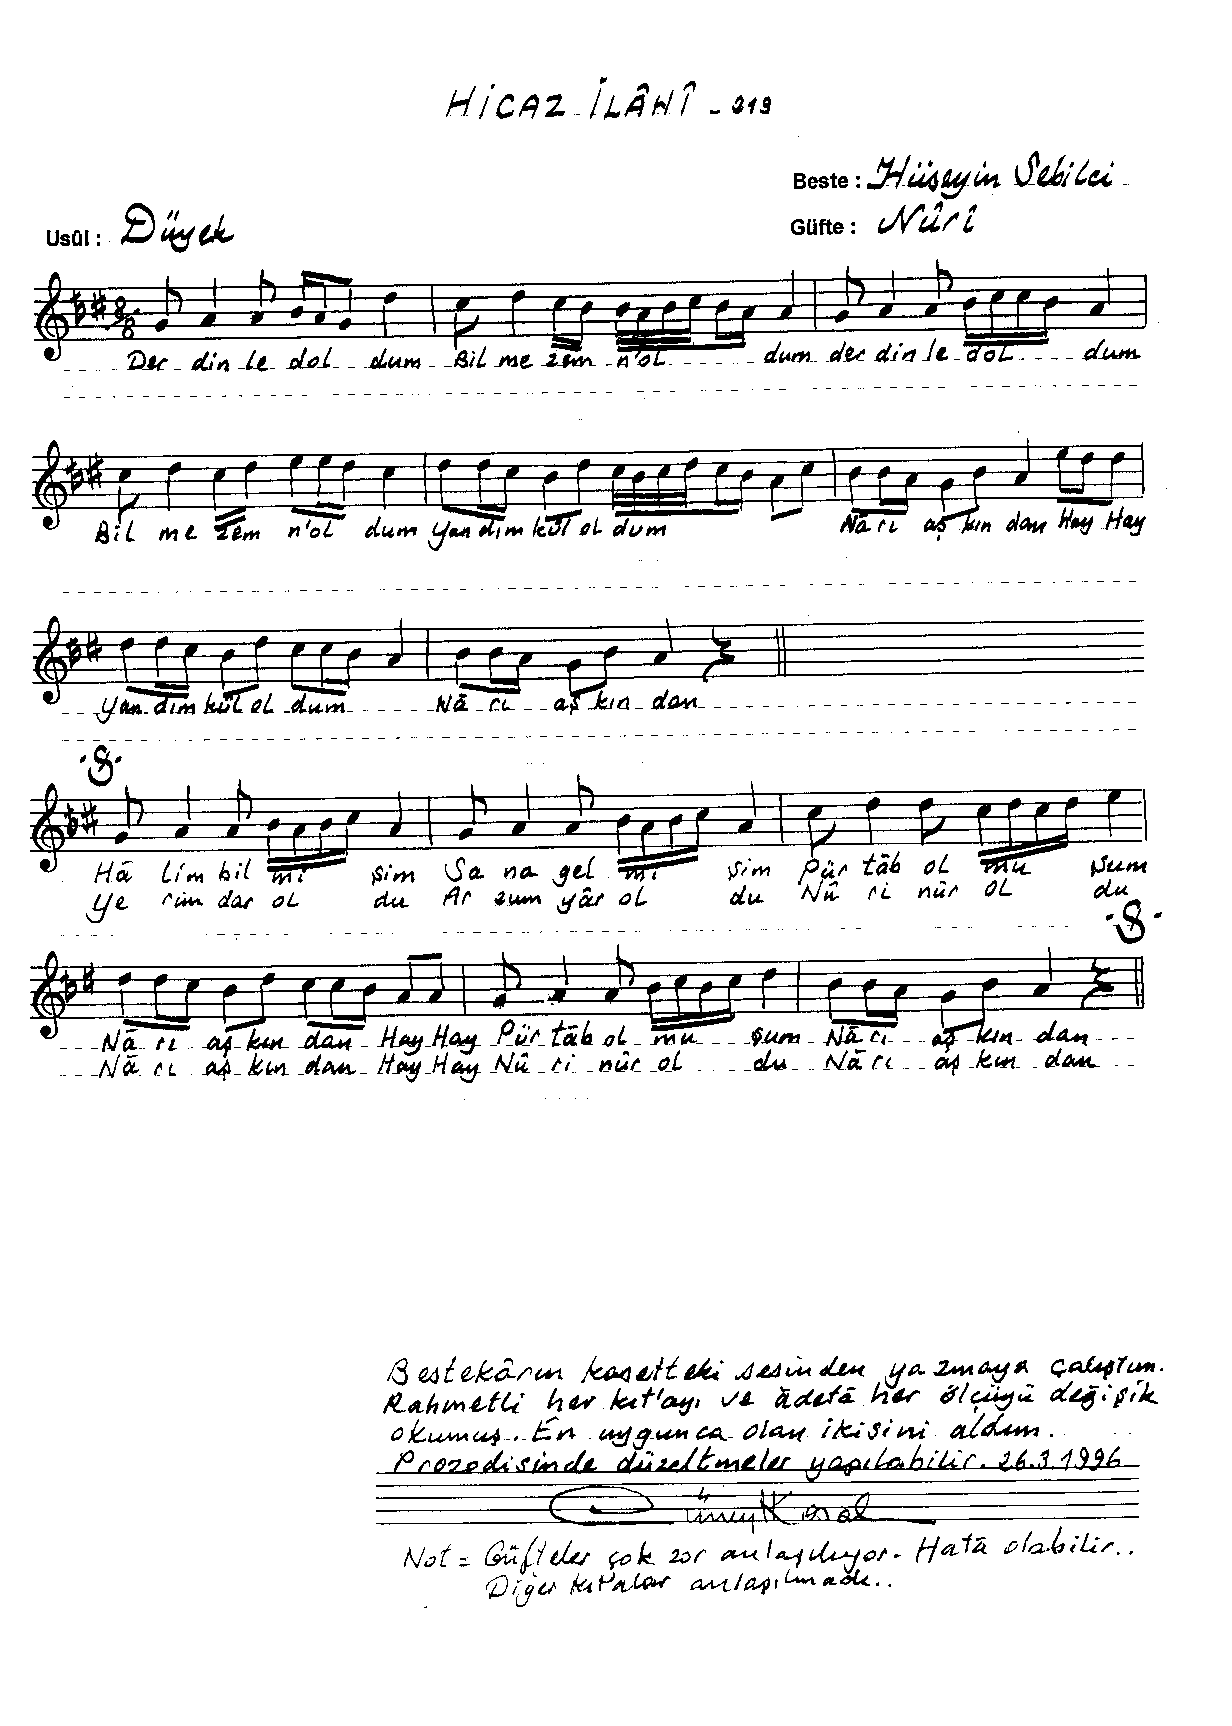 HİCAZ İLÂHÎ - 319
Beste : Hüseyin Sebilci
Usûl : Düyek
Güfte : Nûrî
8
8
Der din le dol dum Bil me zem n'ol dum der din le dol dum
Bil me zem n'ol dum Yan dım kül ol dum Nâ rı aş kın dan Hay Hay
Yan dım kül ol dum Nâ rı aş kın dan
Hâ lim bil mi şim Sa na gel mi şim Pür tâb ol mu şum
Ye rim dar ol du Ar zum yâr ol du Nû ri nûr ol du
Nâ rı aş kın dan Hay Hay Pür tâb ol mu şum Nâ rı aş kın dan
Nâ rı aş kın dan Hay Hay Nû ri nûr ol du Nâ rı aş kın dan
Bestekârın kasetteki sesinden yazmaya çalıştım.
Rahmetli her kıt'ayı ve âdetâ her ölçüyü değişik
okumuş. En uygunca olan ikisini aldım.
Prozodisinde düzeltmeler yapılabilir. 26.3.1996
Not = Güfteler çok zor anlaşılıyor. Hatâ olabilir..
Diğer kıt'alar anlaşılmadı..